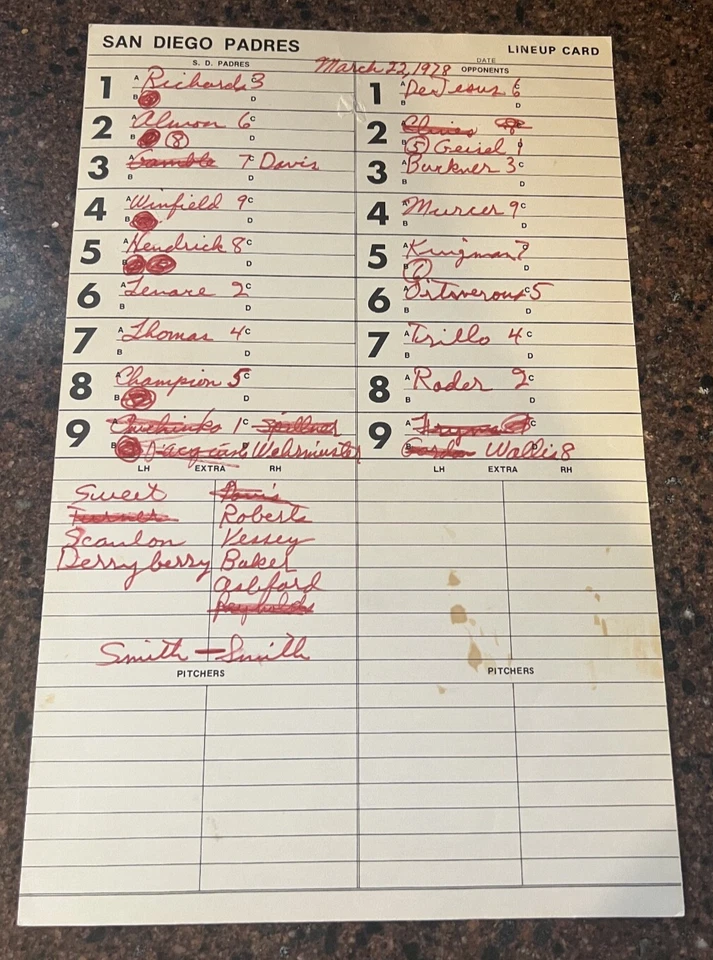 SAN DIEGO PADRES
LINEUP CARD
S. D. PADRES
March 22, 1978
DATE
OPPONENTS
1 A Richards 3 C
B D
2 A Almon 6 C
B 8 D
3 A Gamble 7 C Davis
B D
4 A Winfield 9 C
B D
5 A Hendrick 8 C
B D
6 A Tenace 2 C
B D
7 A Thomas 4 C
B D
8 A Champion 5 C
B D
9 A 1 C
B D Wehrmeister
LH EXTRA RH
Sweet
Turner
Scanlon
Derryberry
Davis
Roberts
Baker
Ashford
Reynolds
Smith — Smith
PITCHERS
1 A DeJesus 6 C
B D
2 A 8 C
B 5 Geisel 1 D
3 A Buckner 3 C
B D
4 A Murcer 9 C
B D
5 A Kingman 7 C
B D
6 A 5 C
B D
7 A Trillo 4 C
B D
8 A Rader 2 C
B D
9 A C
B Gordon Wallis 8 D
LH EXTRA RH
PITCHERS